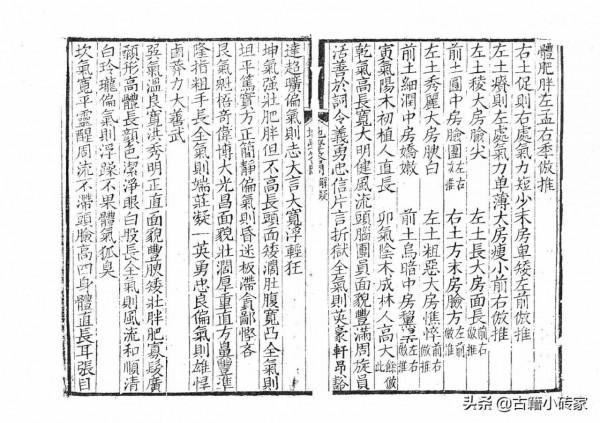 體肥胖左孟右季倣推
右土促則右處氣力短少末房卑矮左前倣推
左土瘠則左處氣力单薄大房瘦小前右倣推
左土稜大房臉尖 左土長大房面長前右倣推
前土圓中房臉團左右倣推 右土方末房臉方左前倣推
左土秀麗大房腴白 左土粗惡大房憔悴前右倣推
前土細潤中房嬌嫩 前土烏暗中房黧左右倣推
寅氣陽木初植人直長 卯氣陰木成林人高大餘倣此
乾氣高長寬大明健風流頭腦圓員面貌豐滿周旋員
活善於詞令義勇忠信片言折獄全氣則英豪軒昂豁
達超曠偏氣則志大言大寬浮輕狂
坤氣强壯肥胖但不高長頭面矮濶肚腹寬凸全氣則
坦平篤實方正簡靜偏氣則昏迷板滯貪鄙慳吝
艮氣魁悟奇偉博大光昌面貌壯濶厚重直方鼻豐準
隆指粗手長全氣則端莊凝一英勇忠良偏氣則雄悍
鹵莽力大義武
巽氣溫良寬洪秀明正直面貌豐腴矮壯胖肥寡髮廣
顙形高體長顏色潔淨眼白股長全氣則風流和順清
白玲瓏偏氣則浮躁不果體氣狐臭
坎氣寬平靈醒周流不滯頭臉高四身體直長耳張目
頭条 @古籍小砖家